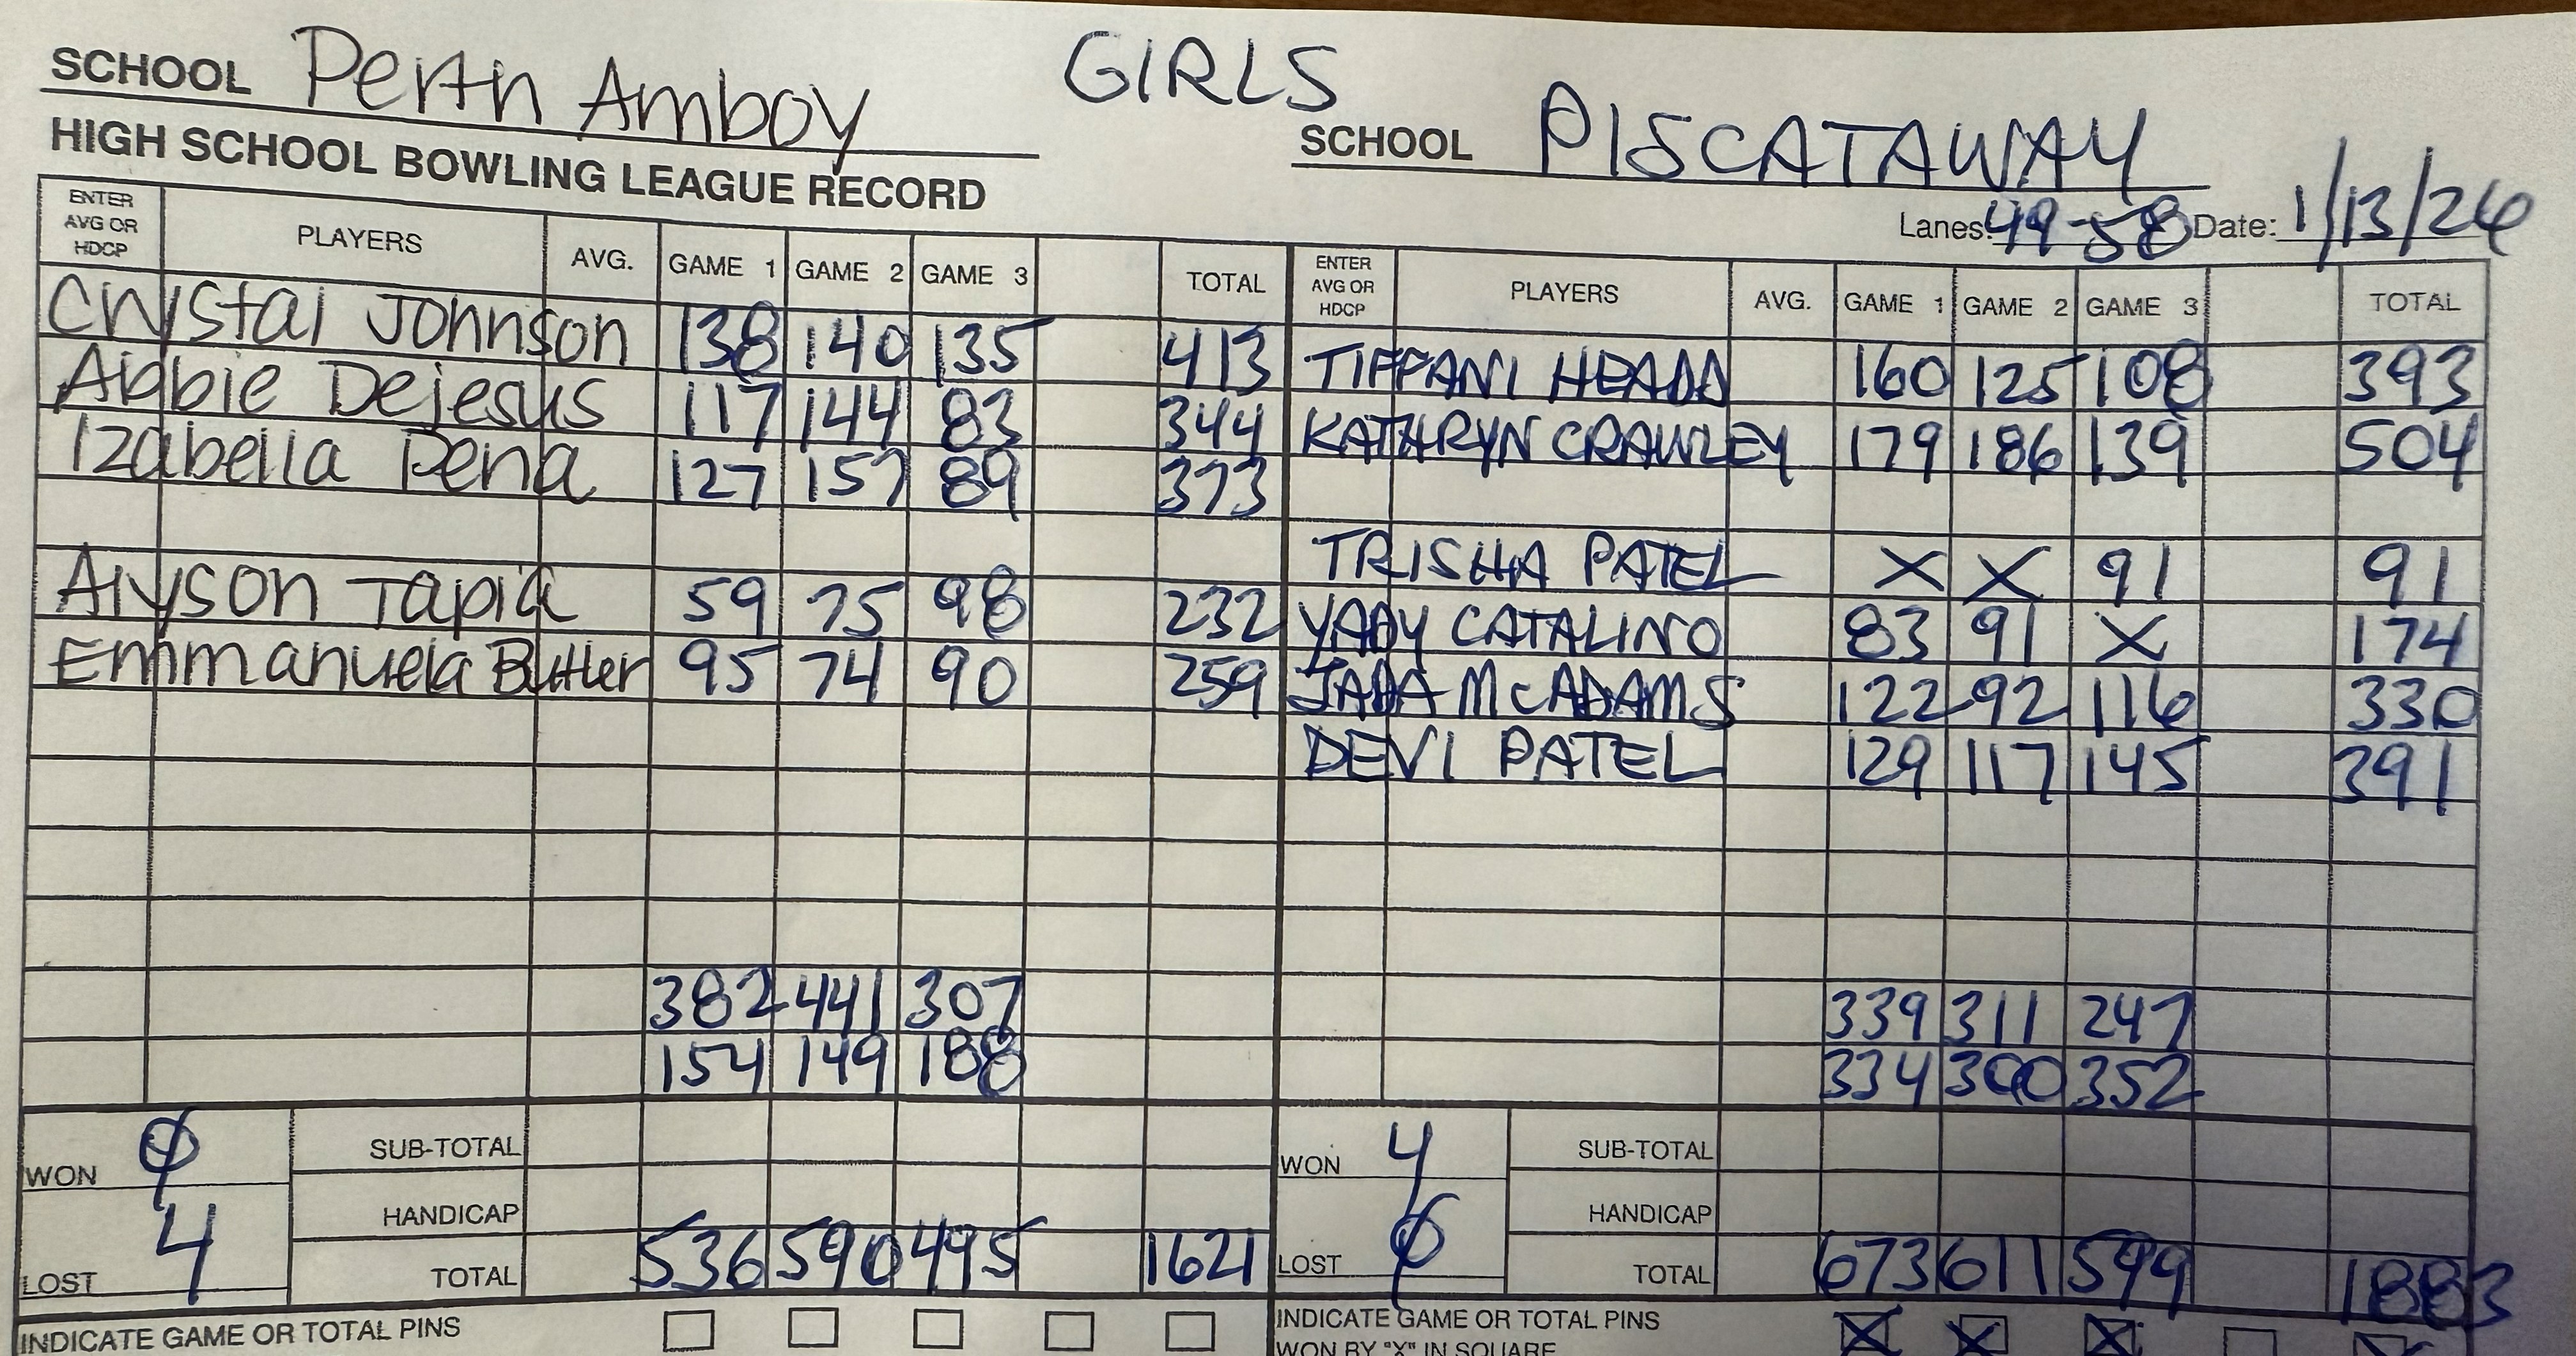 SCHOOL Perth Amboy
GIRLS
SCHOOL PISCATAWAY
HIGH SCHOOL BOWLING LEAGUE RECORD
Lanes: 49-58 Date: 1/13/26
ENTER AVG OR HDCP PLAYERS AVG. GAME 1 GAME 2 GAME 3 TOTAL
Crystal Johnson 138 140 135 413
Abbie Dejesus 117 144 83 344
Izabella Pena 127 157 89 373
Alyson Tapia 59 75 98 232
Emmanuela Butler 95 74 90 259
382 441 307
154 149 188
WON 0
LOST 4
SUB-TOTAL
HANDICAP
TOTAL 536 590 495 1621
INDICATE GAME OR TOTAL PINS
ENTER AVG OR HDCP PLAYERS AVG. GAME 1 GAME 2 GAME 3 TOTAL
TIFFANI HEADD 160 125 108 393
KATHRYN CRAWLEY 179 186 139 504
TRISHA PATEL X X 91 91
YADY CATALINO 83 91 X 174
JADA McADAMS 122 92 116 330
DEVI PATEL 129 117 145 391
339 311 247
334 300 352
WON 4
LOST 0
SUB-TOTAL
HANDICAP
TOTAL 673 611 599 1883
INDICATE GAME OR TOTAL PINS
WON BY "X" IN SQUARE
X X X